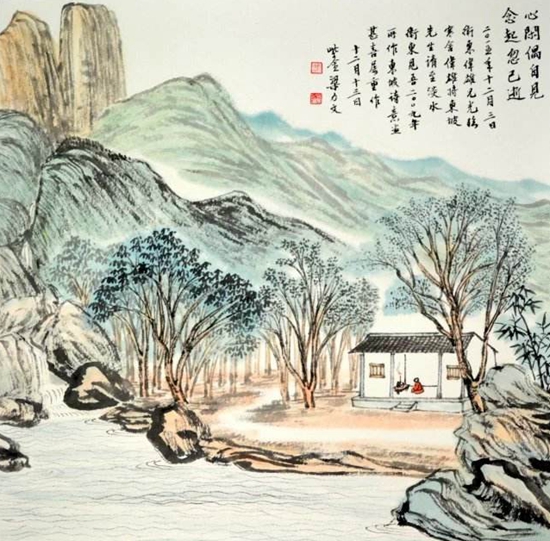 心閒偶自見
念起忽已逝
二〇一五年十二月三日
衛東偉雄兄光臨
寒舍偉雄持東坡
先生詩至淡水
衛東見吾二〇〇九年
所作東坡詩意畫
甚喜屬重作
十二月十三日
梁乃文